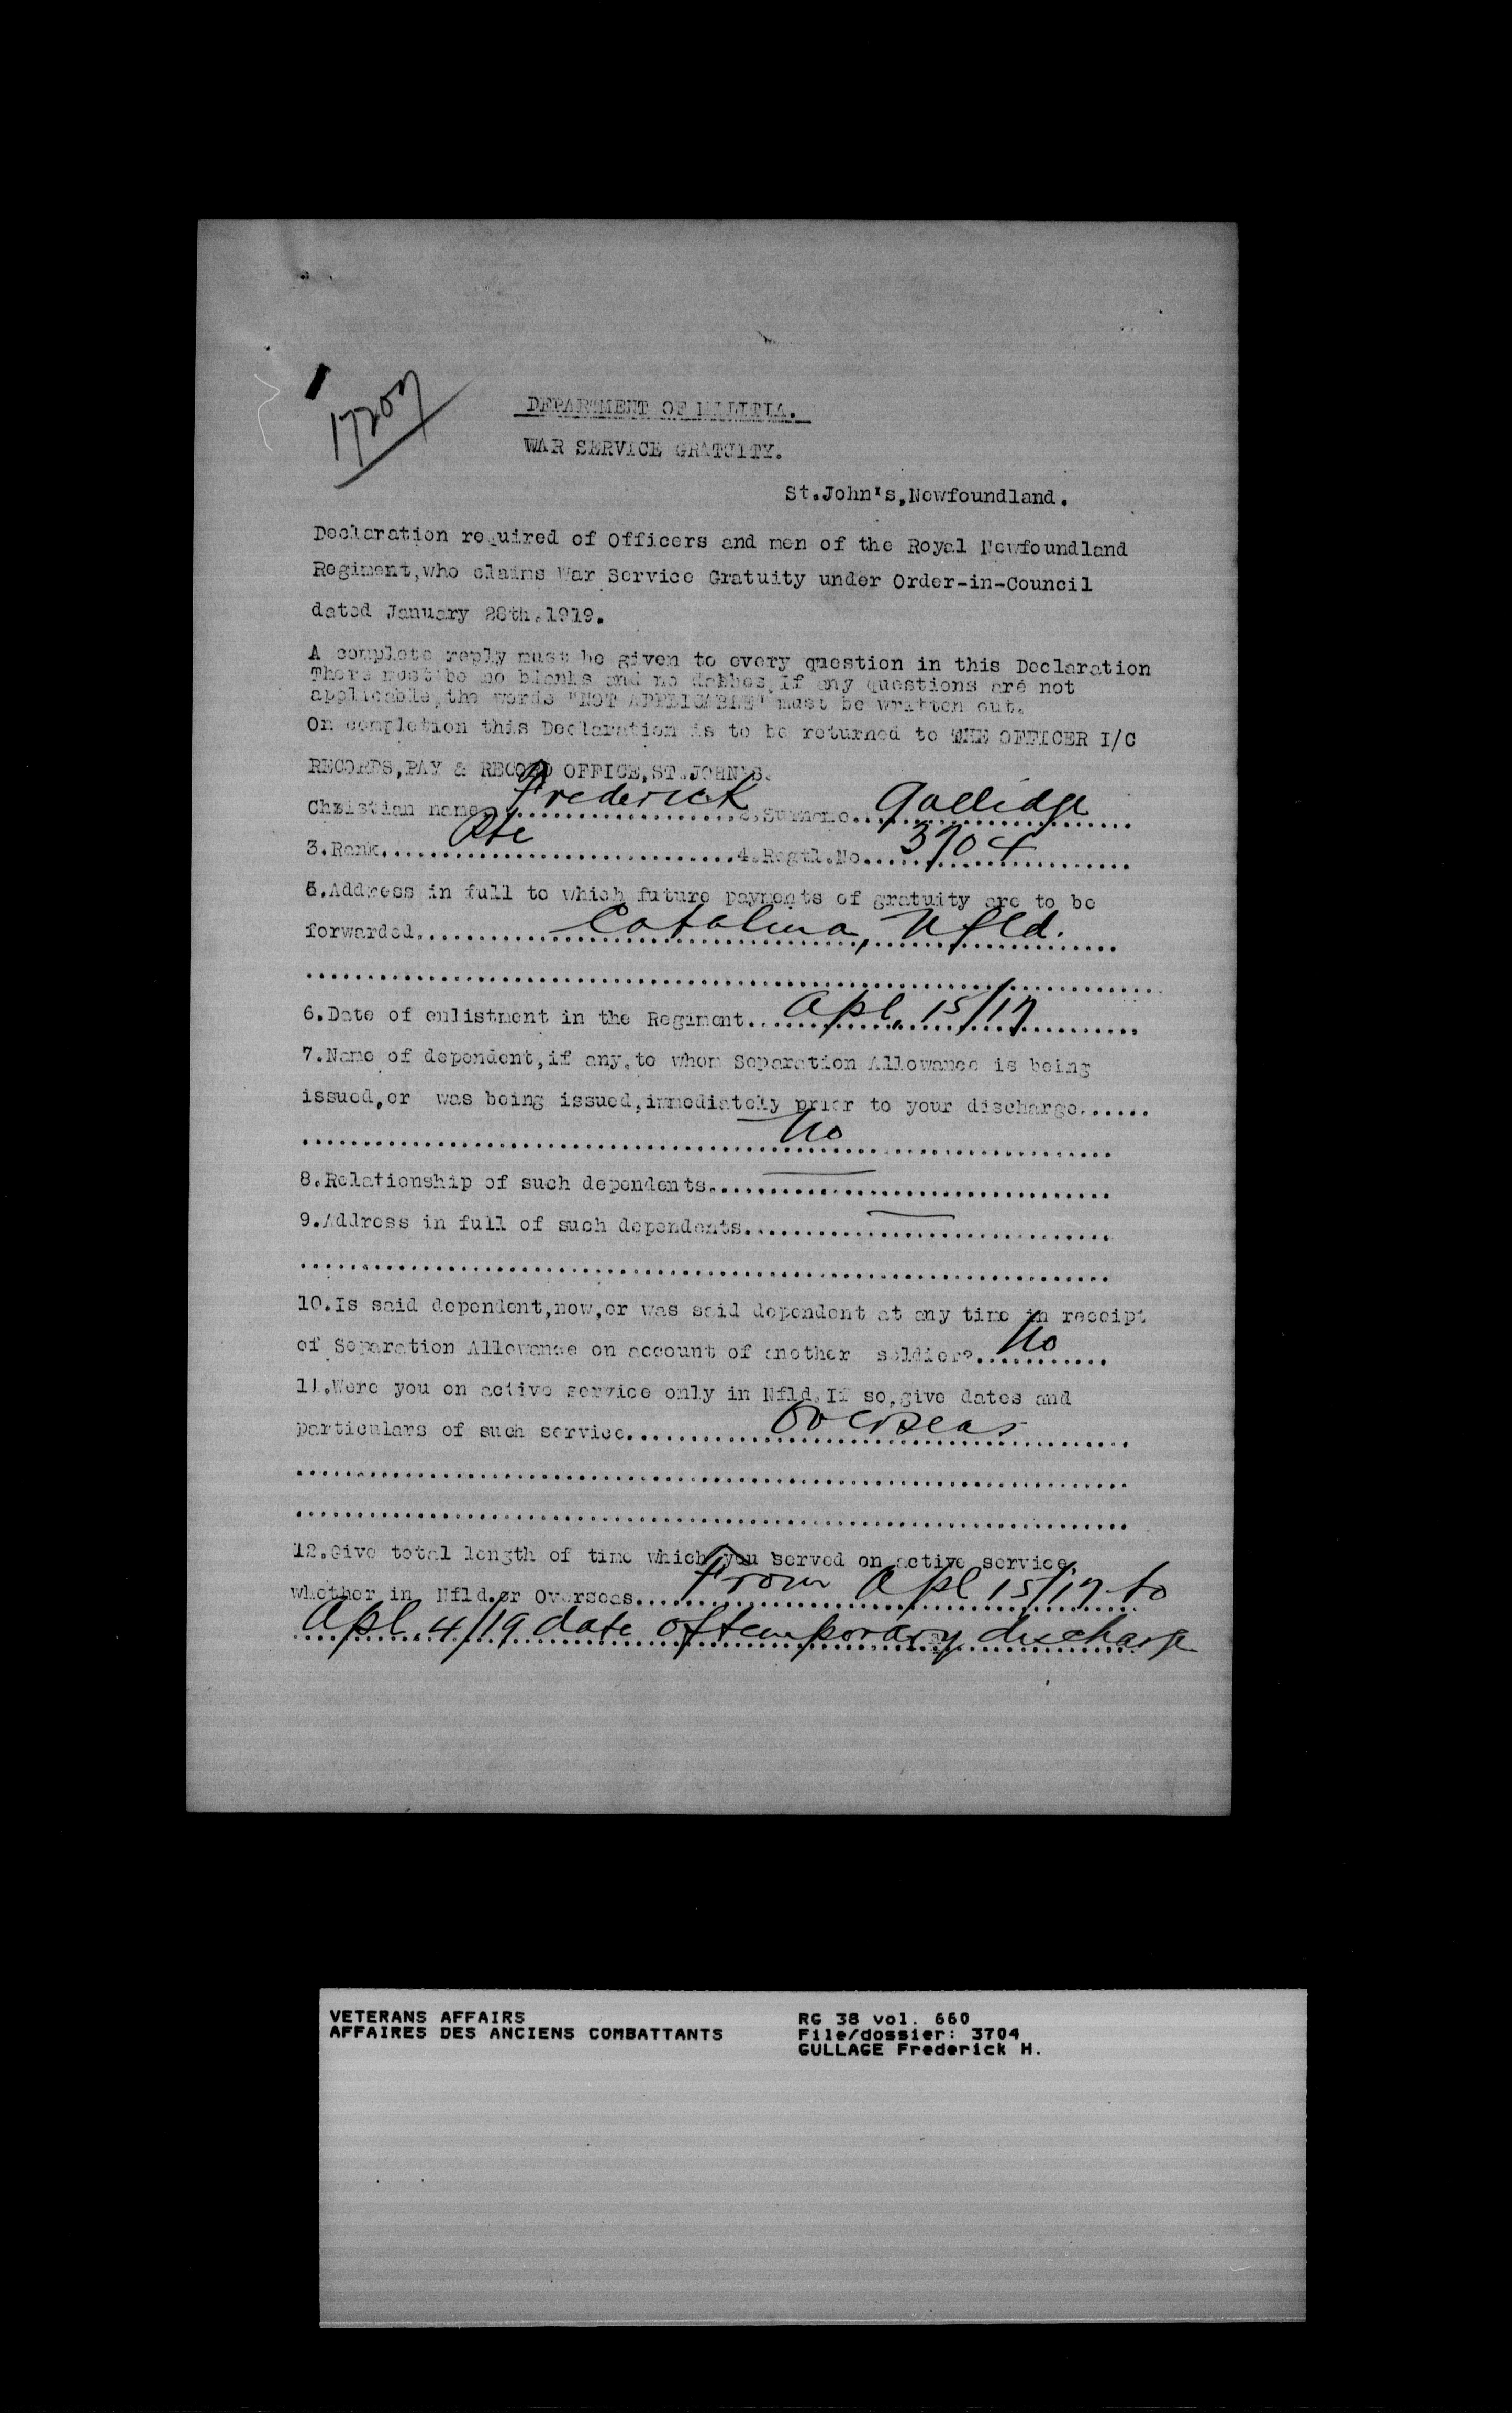 17207
DEPARTMENT OF MILITIA.
WAR SERVICE GRATUITY.
St.John's,Newfoundland.
Declaration required of Officers and men of the Royal Newfoundland
Regiment,who claims War Service Gratuity under Order-in-Council
dated January 28th.1919.
A complete reply must be given to every question in this Declaration
There must be no blanks and no dashes.If any questions are not
applicable,the words "NOT APPLICABLE" must be written out.
On completion this Declaration is to be returned to THE OFFICER I/C
RECORDS,PAY & RECORD OFFICE,ST.JOHN'S.
Christian name Frederick 2.Surname Gullidge
3.Rank Pte 4.Regtl.No 3704
5.Address in full to which future payments of gratuity are to be
forwarded Catalina, Nfld.
6.Date of enlistment in the Regiment Apl. 15/17
7.Name of dependent,if any,to whom Separation Allowance is being
issued,or was being issued,immediately prior to your discharge......
No
8.Relationship of such dependents
9.Address in full of such dependents
10.Is said dependent,now,or was said dependent at any time in receipt
of Separation Allowance on account of another soldier? No
11.Were you on active service only in Nfld.If so,give dates and
particulars of such service Overseas
12.Give total length of time which you served on active service
whether in Nfld.or Overseas From Apl 15/17 to
Apl. 4/19 date of temporary discharge
VETERANS AFFAIRS
AFFAIRES DES ANCIENS COMBATTANTS
RG 38 vol. 660
File/dossier: 3704
GULLAGE Frederick H.